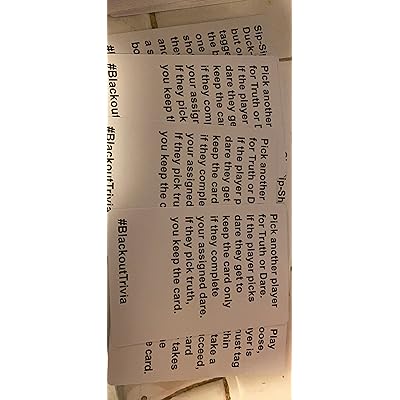 Sip-Sh
Duck-
but o
tagge
the b
one
sho
a s
bo
Pick another
for Truth or
If the player
dare they ge
keep the car
if they com
your assig
If they pick
you keep t
#Blackou
ip-Sh
Pick another
for Truth or D
If the player p
dare they get
keep the card
if they comple
your assigned
If they pick tru
you keep the c
#BlackoutTrivia
Pick another player
for Truth or Dare.
If the player picks
dare they get to
keep the card only
if they complete
your assigned dare.
If they pick truth,
you keep the card.
#BlackoutTrivia
Play
oose,
yer is
must tag
thin
take a
cceed,
ard
takes
e card.